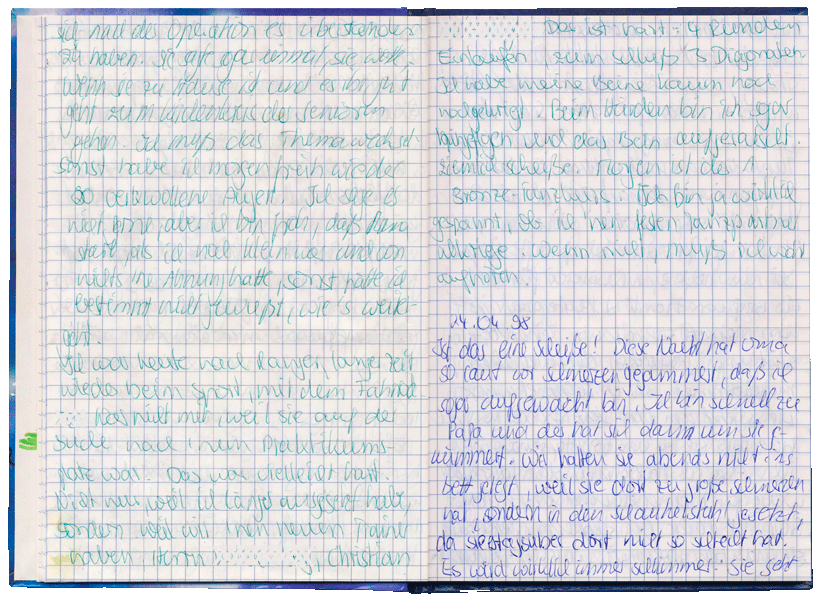 sich nach der Operation es überstanden
zu haben. Sie sagte sogar einmal, sie wolle,
wenn sie zu Hause ist und es ihr gut
geht zum Kinderkreis der Senioren
gehen. Ich muß das Thema wechseln
sonst habe ich morgen früh wieder
so verquollene Augen. Ich sage es
nicht gerne, aber ich bin froh, daß Mama
starb, als ich noch klein war und von
nichts 'ne Ahnung hatte, sonst hätte ich
bestimmt nicht gewußt, wie's weiter-
geht.
Ich war heute nach langer, langer Zeit
wieder beim Sport, mit dem Fahrrad
kam nicht mit, weil sie auf der
Suche nach 'nem Praktikums-
platz war. Das war vielleicht hart.
Nicht nur, weil ich länger ausgesetzt habe,
sondern weil wir 'nen neuen Trainer
haben, Herrn Christian
Das ist hart: 4 Runden
Einlaufen, zum Schluß 3 Diagonalen.
Ich habe meine Beine kaum noch
hochgekriegt. Beim Hürden bin ich sogar
hingeflogen und das Bein aufgeratscht.
Ziemlich scheiße. Morgen ist der 1.
Bronze-Tanzkurs. Ich bin ja wirklich
gespannt, ob ich 'nen festen Tanzpartner
abkriege. Wenn nicht, muß ich wohl
aufhören.
24.04.98
Ist das eine Scheiße! Diese Nacht hat Oma
so laut vor Schmerzen gejammert, daß ich
sogar aufgewacht bin. Ich bin schnell zu
Papa und der hat sich dann um sie ge-
kümmert. Wir hatten sie abends nicht ins
Bett gelegt, weil sie dort zu große Schmerzen
hat, sondern in den Schaukelstuhl gesetzt,
da sie tagsüber dort nicht so Schmerzen hat.
Es wird wirklich immer schlimmer. Sie geht